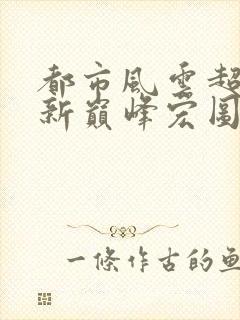 都市風雲超
新巔峰宏圖
一條作古的魚